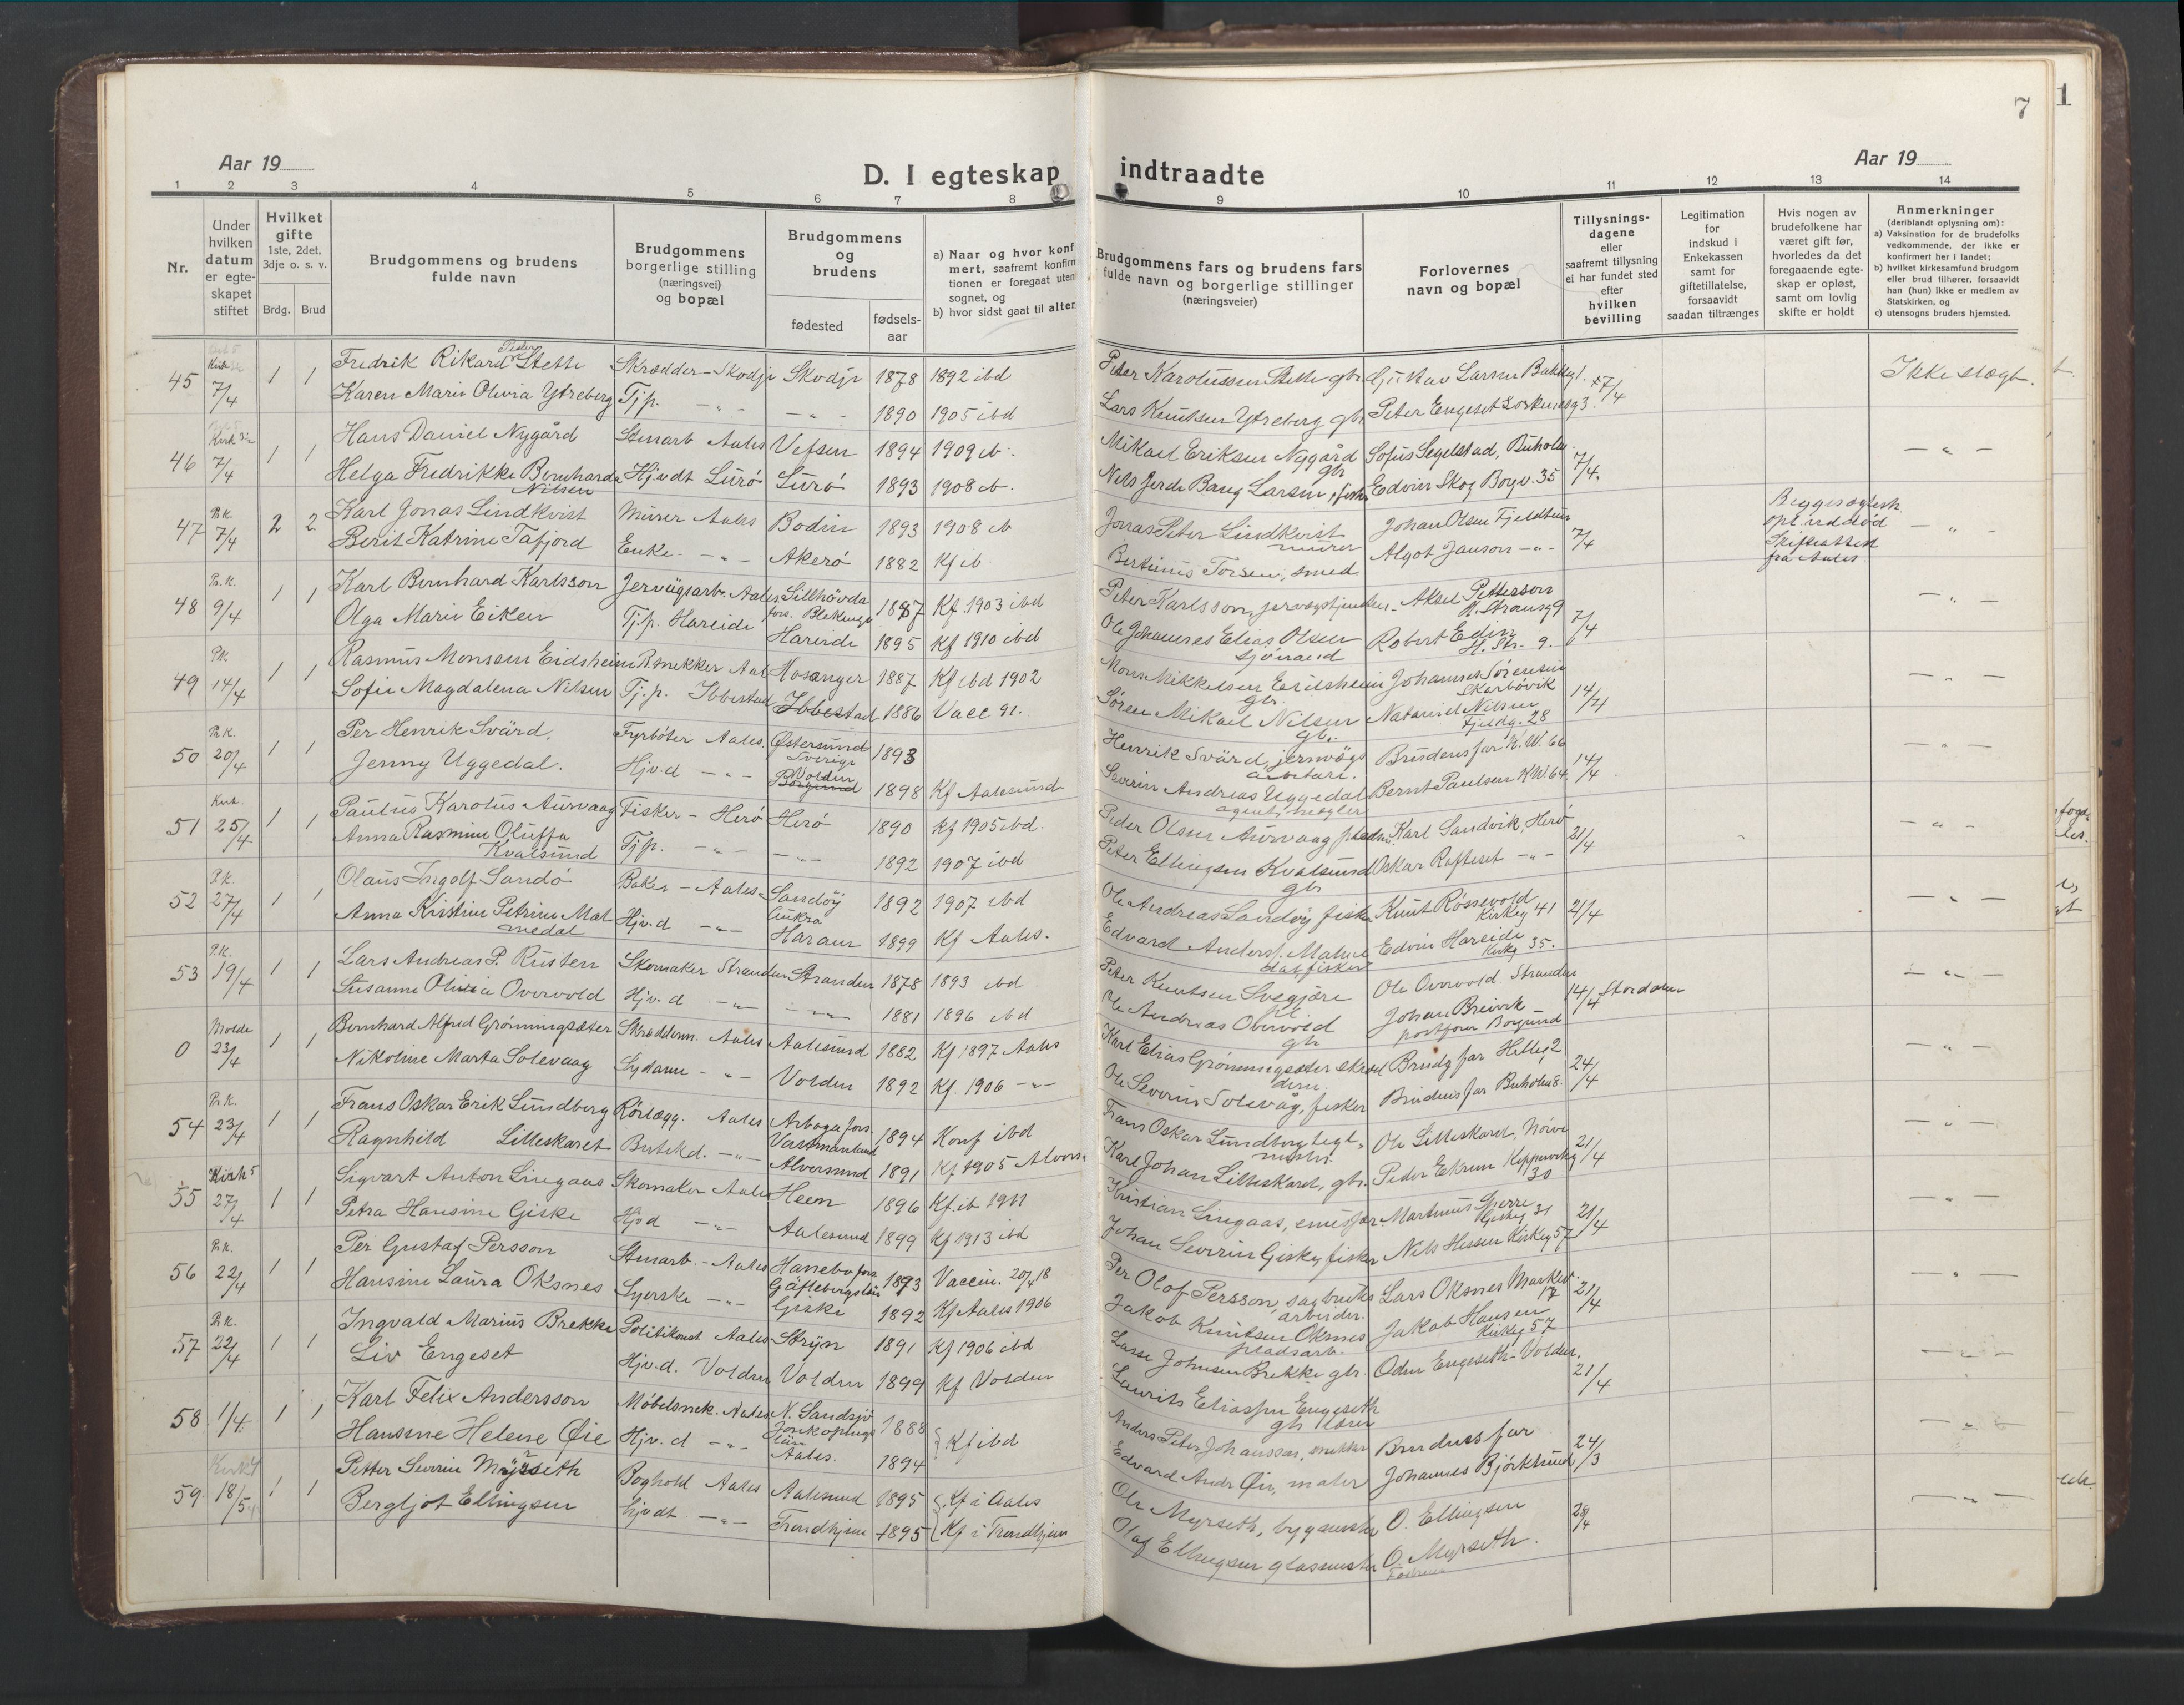 7
1
Aar 19
D. I egteskap indtraadte
Aar 19
1 2 3 4 5 6 7 8 9 10 11 12 13 14
Nr.
Under hvilken datum er egteskapet stiftet
Hvilket gifte 1ste, 2det, 3dje o. s. v.
Brdg. Brud
Brudgommens og brudens fulde navn
Brudgommens borgerlige stilling (næringsvei) og bopæl
Brudgommens og brudens
fødested
fødsels-aar
a) Naar og hvor konf
mert, saafremt konfirm
tionen er foregaat uten
sognet, og
b) hvor sidst gaat til alter
Brudgommens fars og brudens fars fulde navn og borgerlige stillinger (næringsveier)
Forlovernes navn og bopæl
Tillysnings-dagene eller saafremt tillysning ei har fundet sted efter hvilken bevilling
Legitimation for indskud i Enkekassen samt for giftetillatelse, forsaavidt saadan tiltrænges
Hvis nogen av brudefolkene har været gift før, hvorledes da det foregaaende egteskap er opløst, samt om lovlig skifte er holdt
Anmerkninger
(deriblandt oplysning om):
a) Vaksination for de brudefolks vedkommende, der ikke er konfirmert her i landet;
b) hvilket kirkesamfund brudgom eller brud tilhører, forsaavidt han (hun) ikke er medlem av Statskirken, og
c) utensogns bruders hjemsted.
45 Kirk 7/4 1 1 Fredrik Rikard Peder Stette Skrædder - Skodje Skodje 1878 1892 ibd Peder Karolussen Stette gbr Gustav Larsen Bakkeg 1. 7/4 Ikke slægt.
Karen Marie Olivia Ytreberg Tj.p. - " - - " - 1890 1905 ibd Lars Knutsen Ytreberg gbr Peter Engeset Løvkeneg 3.
46 Kirk 7/4 1 1 Hans Daniel Nygård Stenarb Aales Vefsen 1894 1909 ib. Mikael Eriksen Nygård gbr Sofus Segelstad, Buholm 7/4. - " -
Helga Fredrikke Bernharda Nilsen Hj.v.dt Lurö Lurö 1893 1908 ib. Nils Jerde Bang Larsen, fisker Edvin Skog Borgv. 35
47 Pr.k. 7/4 2 2 Karl Jonas Lindkvist Murer Aales Bodin 1893 1908 ib Jonas Peter Lindkvist murer Johan Olsen Fjeldtun 7/4 Begges egtesk. opl. ved död Skifteattest fra Aales. - " -
Berit Katrine Tafjord Enke. - " - Akerö 1882 Kf ib. Bertinus Torsen, smed Algot Janson - " -
48 Pr.K. 9/4 1 1 Karl Bernhard Karlsson Jernvägsarb. Aales Sillhövda fors. Blekinge 1887 Kf. 1903 ibd Peter Karlsson, jernvägstjenstem. Aksel Petterson K. Strausg 9 7/4 - " -
Olga Marie Eiken Tj.p. Hareide Hareide 1895 Kf 1910 ibd Ole Johannes Elias Olsen sjömand Robert Edin H. Str. 9.
49 P.K. 14/4 1 1 Rasmus Monsen Eidsheim B.snekker Aal Hosanger 1887 Kf ibd 1902 Mons Mikkelsen Eidsheim gbr. Johannes Sörensen Skarbövik 14/4 - " -
Sofie Magdalena Nilsen Tj.p. Ibbestad Ibbestad 1886 Vacc 91. Sören Mikael Nilsen gb. Nataniel Nilsen Fjeldg. 28
50 Pr.K. 20/4 1 1 Per Henrik Svärd. Fyrböter Aales. Östersund Sverige 1893 Henrik Svärd, jernvägs arbetare. Brudens far K.W. 66 14/4 - " -
Jenny Uggedal. Hj.v.d - " - Volden Borgund 1898 Kf Aalesund Severin Andreas Uggedal agent, megler Bernt Paulsen K.W 64
51 Kirk. 25/4 1 1 Paulus Karolus Aurvaag Fisker - Herö Herö 1890 Kf 1905 ibd. Peder Olsen Aurvaag pladsm. Karl Sandvik, Herö 21/4 - " -
Anna Rasmine Oluffa Kvalsund Tj.p. - " - - " - 1892 1907 ibd Peter Ellingsen Kvalsund gbr Oskar Rafteset - " -
52 P.k. 27/4 1 1 Olaus Ingolf Sandö Baker - Aales Sandöy 1892 1907 ibd Ole Andreas Sandöy fisker Knut Røssevold Kirkeg 41 21/4 - " -
Anna Kristine Petrine Malmedal Hj.v.d - " - Aukra Haram 1899 Kf Aales. Edvard Anders. Malmedal fisker Edvin Hareide Kirkg 35.
53 P.K. 19/4 1 1 Lars Andreas P. Rusten Skomaker Stranden Stranden 1878 1893 ibd Peter Knutsen Svegjære Ole Overvold Stranden 14/4 Stordalen - " -
Susanne Olivia Overvold Hj.v.d - " - - " - 1881 1896 ibd Ole Andreas Overvold gbr Johan Breivik postfører Borgund
0 Molde 23/4 1 1 Bernhard Alfred Grönningsæter Skræddern. Aales Aalesund 1882 Kf 1897 Aales Karl Elias Grönningsæter skrædderm. Brudg far Helleg. 2 24/4 - " -
Nikoline Marta Solevaag Sydame - " - Volden 1892 Kf. 1906 - " - Ole Severin Solevåg, fisker Brudens far Buholm 8.
54 Pr.K. 23/4 1 1 Frans Oskar Erik Lundberg Rörlægg. Aales Arboga fors. Vestmanland 1894 Konf ibd Frans Oskar Lundberg tegl. mester. Ole Lilleskaret, Nörve 21/4 - " -
Ragnhild Lilleskaret Butikd. - " - Alversund 1891 Kf 1905 Alvers. Karl Johan Lilleskaret, gbr. Peder Ekrem Kippervikg 30
55 Kirk 5 27/4 1 1 Sigvart Anton Lingaas Skomaker Aales Heen 1896 Kf. ib 1911 Kristian Lingaas, emisfær Martinus Sperre Giskeg 31 21/4 - " -
Petra Hansine Giske Hj.v.d - " - Aalesund 1899 Kf 1913 ibd Johan Severin Giske, fisker Nils Hessen Kirkeg 57
56 Pr.k. 22/4 1 1 Per Gustaf Persson Stenarb. - Aales Hanebo fors Gäfleborgslän 1893 Vaccin. 20/4 18 Per Olof Persson, sagbruks arbeider. Lars Oksnes Markedv. 17 21/4 - " -
Hansine Laura Oksnes Syerske - " - Giske 1892 Kf Aales 1906 Jakob Knutsen Oksnes pladsarb. Jakob Hansen Kirkeg 57
57 Pr.k. 22/4 1 1 Ingvald Marius Brekke Politikonst Aales Stryn 1891 Kf 1906 ibd Lasse Johnsen Brekke gbr. Oden Engeseth - Volden. 21/4 - " -
Liv Engeset Hj.v.d. Volden Volden 1899 Kf Volden Laurits Eliassen Engeseth gbr lærer
58 1/4 1 1 Karl Felix Andersson Møbelsnek. Aales N. Sandsjö Jönköpings län 1888 Kf ibd Anders Peter Johansson, snekker Brudens far 24/3 - " -
Hansine Helene Øie Hj.v.d - " - Aales. 1894 Edvard Andr Øie, maler Johannes Björklund
59 Kirk 18/5 1 1 Petter Severin Myrseth Boghold Aales Aalesund 1895 Kf i Aales Ole Myrseth, bygmester O. Ellingsen 28/4 - " -
Bergljot Ellingsen Hj.v.dt - " - Trondhjem 1895 Kf i Trondhjem Olaf Ellingsen glasmester O. Myrseth.